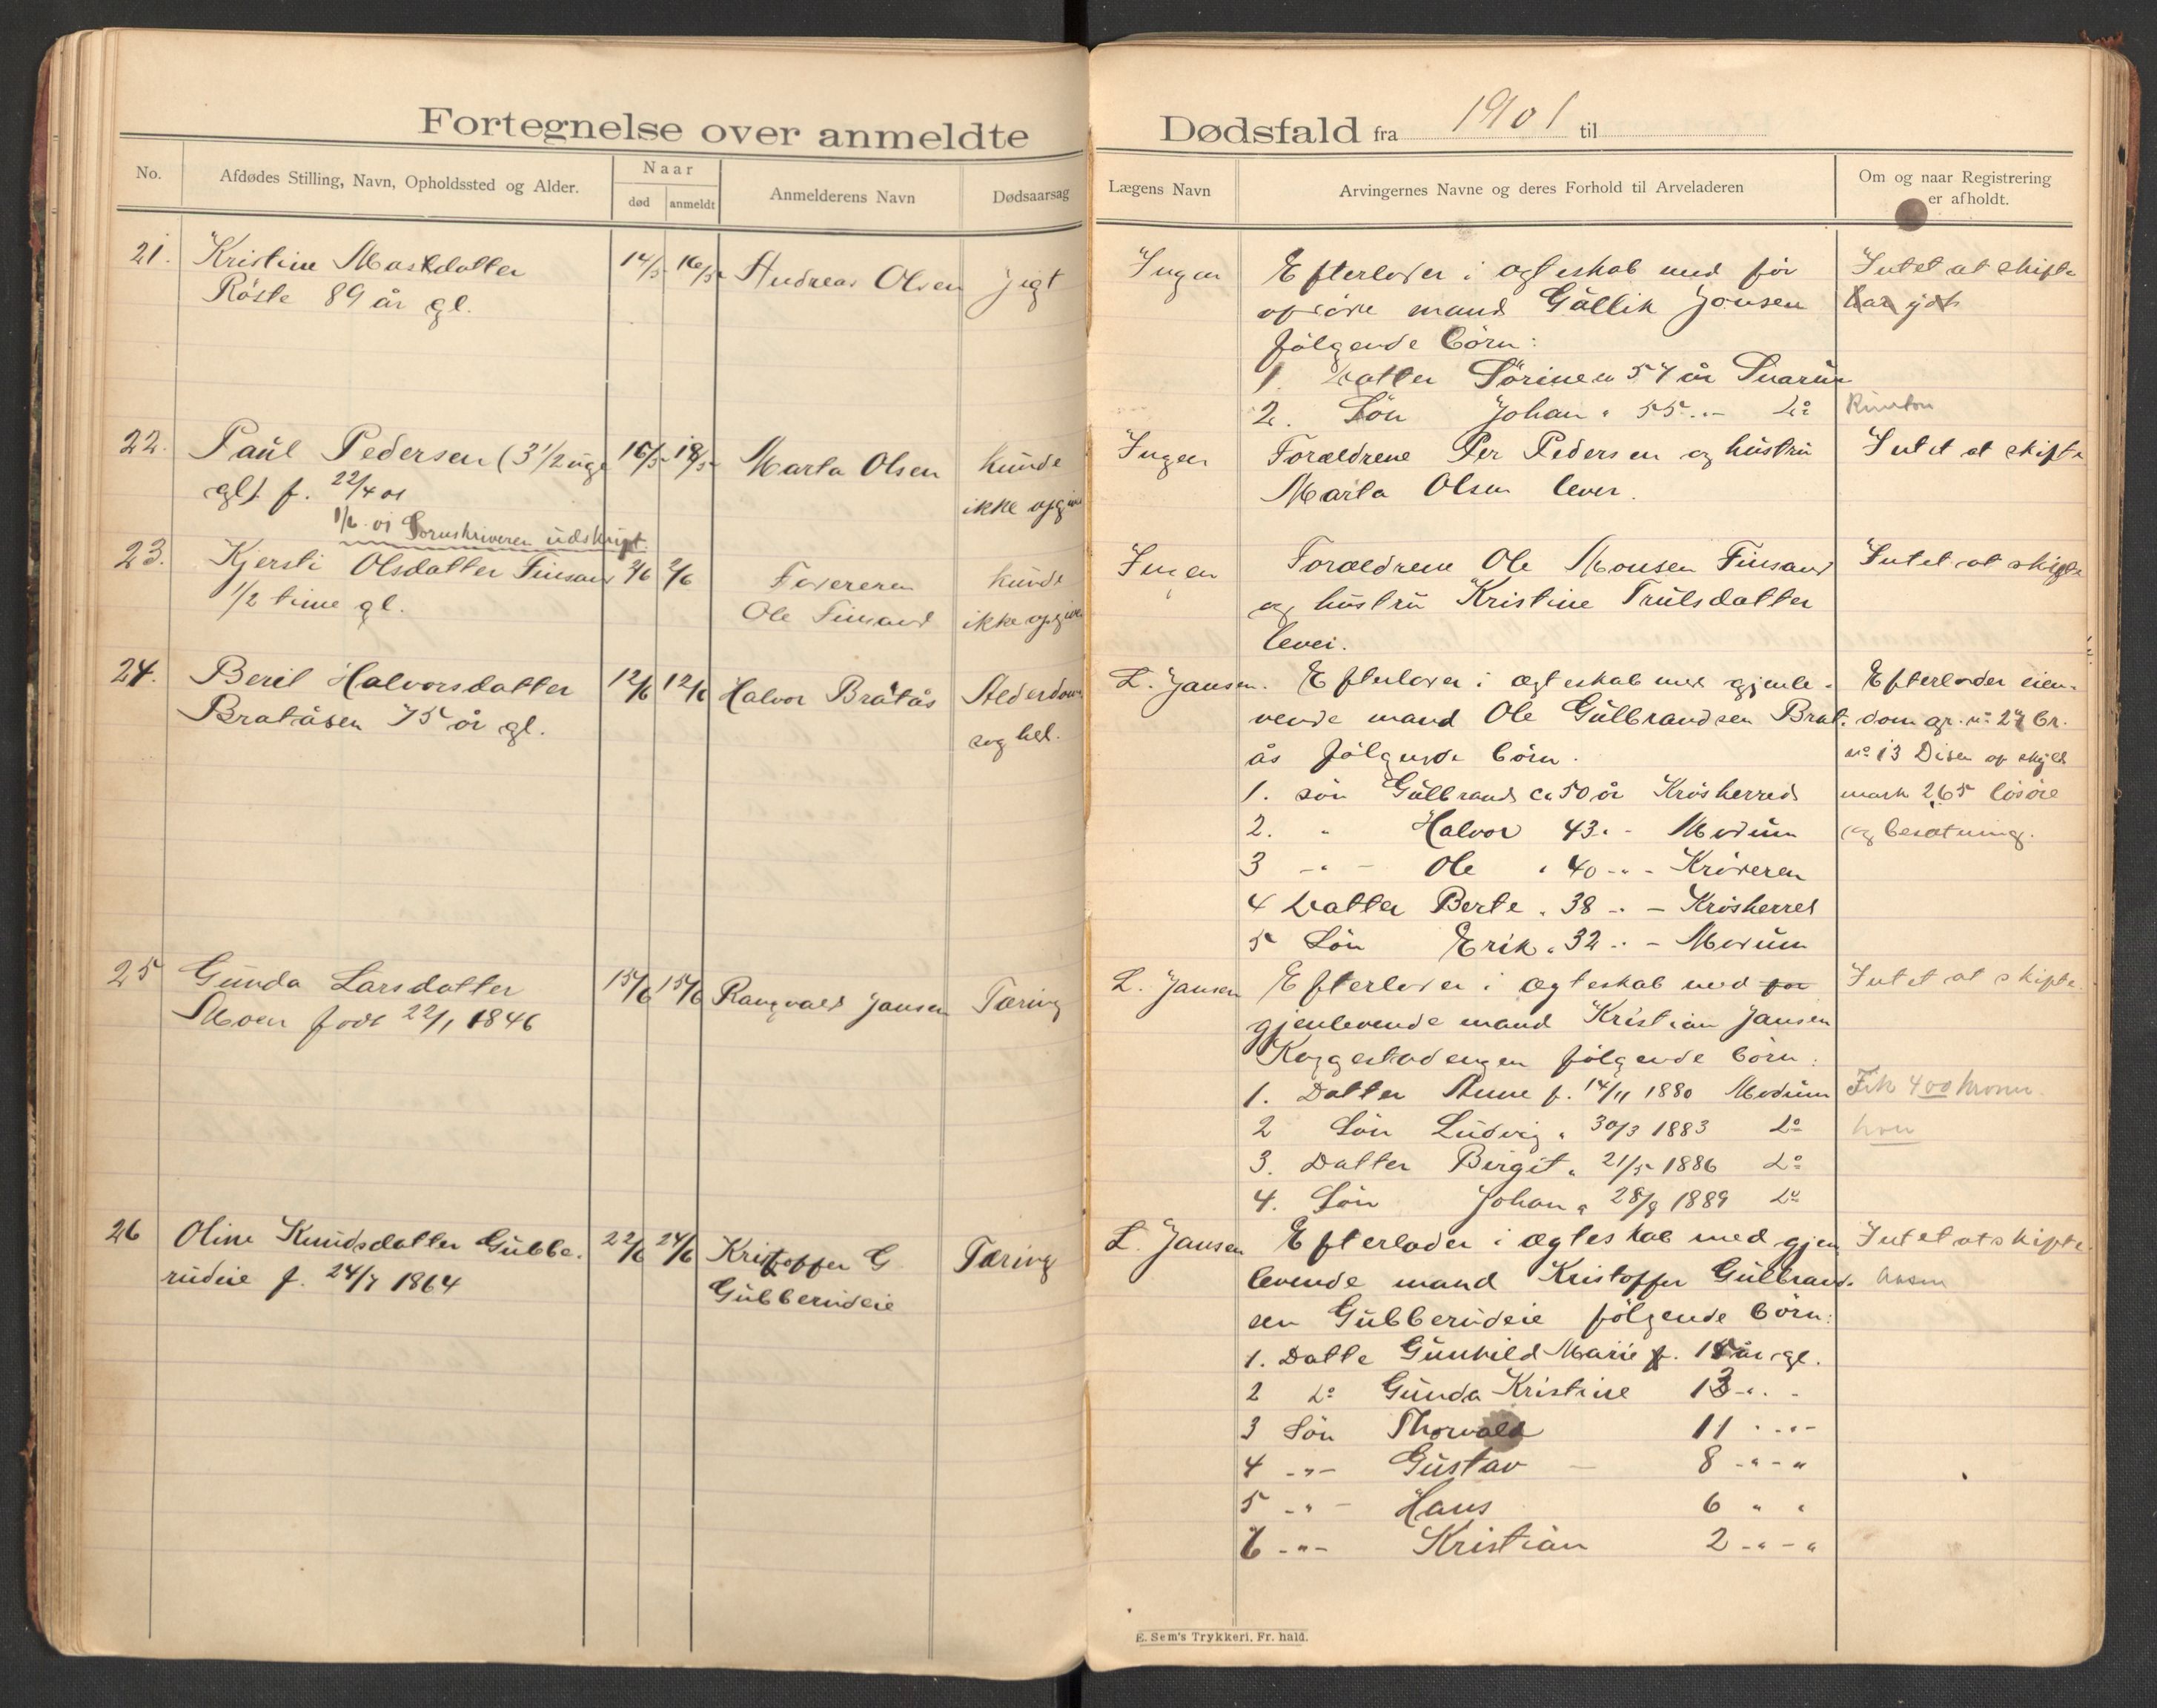 Fortegnelse over anmeldte
No. Afdødes Stilling, Navn, Opholdssted og Alder. Naar død anmeldt Anmelderens Navn Dødsaarsag
21. Kristine
Röste 89 år gl.
14/5 16/5 Andreas Olsen jigt
22. Paul Pedersen (3 1/2 uge
gl) f. 22/4 01
16/5 18/5 Marta Olsen kunde
ikke opgives
1/6 01 Sorenskriveren udskript.
23. Kjersti Olsdatter Finsand
1/2 time gl.
2/6 2/6 Faderen
Ole Finsand
kunde
ikke opgives
24. Beril Halvorsdatter
Bratåsen 75 år gl.
12/6 12/6 Halvor Bråtås Alderdom
25 Gunda Larsdatter
Moen född 22/1 1846
15/6 15/6 Rangvald Jansen Tæring
26 Oline Knudsdatter Gubbe-
rudeie f. 24/7 1864
22/6 24/6 Kristoffer G
Gubberudeie
Tæring
Dødsfald fra 1901 til
Lægens Navn Arvingernes Navne og deres Forhold til Arveladeren Om og naar Registrering er afholdt.
Ingen Efterlader i ægteskab med för
afdöde mand Gullik Jonsen
fölgende börn:
1. Datter Sörine 57 år Snarum
2. Sön Johan " 55 " - Do
Intet at skifte
Ingen Forældrene Per Pedersen og hustru
Marta Olsen lever.
Intet at skifte
Ingen Forældrene Ole Monsen Finsand
og hustru Kristine Trulsdatter
lever.
Intet at skifte
L. Jansen. Efterlader i ægteskab med gjenle-
vende mand Ole Gulbrandsen Brat-
ås fölgende börn.
1. sön Gulbrand ca 50 år Krösherred
2. " Halvor 43 " - Modum
3 - " - Ole " 40 - " - Kröderen
4 Datter Berte " 38 - " - Krösherred
5 Sön Erik " 32 - " - Modum
Efterlader eien-
dom gr. no 27 br.
no 13 Disen af skyld
mark 2,65 lösöre
og besætning.
L. Jansen Efterlader i ægteskab med for
gjenlevende mand Kristian Jansen
Kaggestadengen fölgende börn:
1. Datter Anne f. 14/11 1880 Modum
2 Sön Ludvig " 30/3 1883 Do
3. Datter Birgit " 21/5 1886 Do
4. Sön Johan " 28/8 1889 Do
Intet at skifte
Fik 400 kroner
L. Jansen Efterlader i ægteskab med gjen
levende mand Kristoffer Gulbrand-
sen Gubberudeie fölgende börn:
1. Datte Gunhild Marie f. 15 år gl.
2 Do Gunda Kristine 13 - " -
3 Sön Thorvald 11 - " -
4 - " - Gustav 8 - " - "
5 - " - Hans 6 " "
6 - " - Kristian 2 - " - "
Intet at skifte
E. Sem's Trykkeri, Fr. hald.